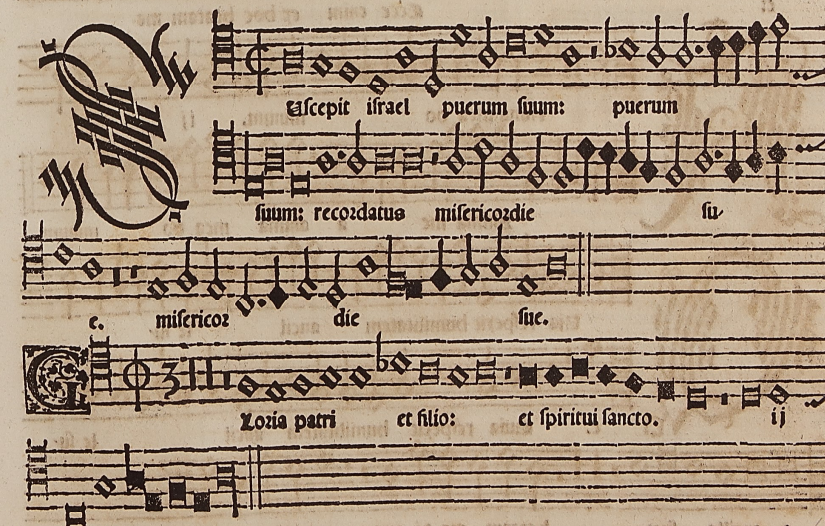 SUscepit israel puerum suum: puerum
suum: recordatus misericordie su-
e. misericor die sue.
GLoria patri et filio: et spiritui sancto. ij